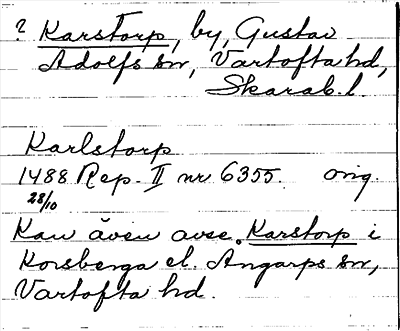 ? Karstorp, by, Gustav
Adolfs sn, Vartofta hd,
Skarab. l.
Karlstorp
1488 Rep. II nr 6355. orig.
28/10
Kan även avse Karstorp i
Korsberga el. Angarps sn,
Vartofta hd.